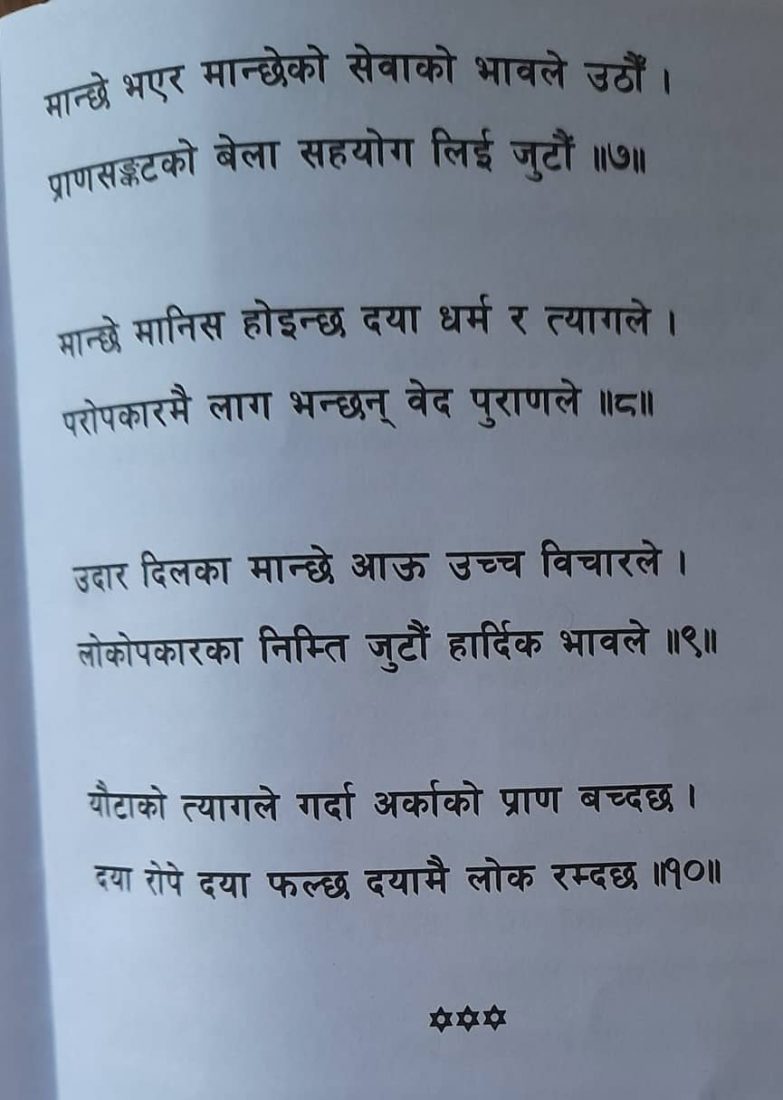 मान्छे भएर मान्छेको सेवाको भावले उठौँ ।
प्राणसङ्कटको बेला सहयोग लिई जुटौँ ॥७॥
मान्छे मानिस होइन्छ दया धर्म र त्यागले ।
परोपकारमै लाग भन्छन् वेद पुराणले ॥८॥
उदार दिलका मान्छे आऊ उच्च विचारले ।
लोकोपकारका निम्ति जुटौँ हार्दिक भावले ॥९॥
यौटाको त्यागले गर्दा अर्काको प्राण बच्दछ ।
दया रोपे दया फल्छ दयामै लोक रम्दछ ॥१०॥
✡✡✡